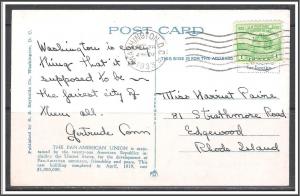 POST CARD
WASHINGTON, D.C.
1933
THIS SIDE IS FOR THE ADDRESS
Washington is every
thing that it is
supposed to be –
the fairest city of
them all.
Gertrude Conn
Miss Harriet Paine
81 Strathmore Road
Edgewood
Rhode Island
THE PAN-AMERICAN UNION is
by the twenty-one American Republics
the United States, for the development of
Pan-American commerce, friendship and peace. This
building was completed in April, 1910,
$1,000,000.
Washington, D. C.